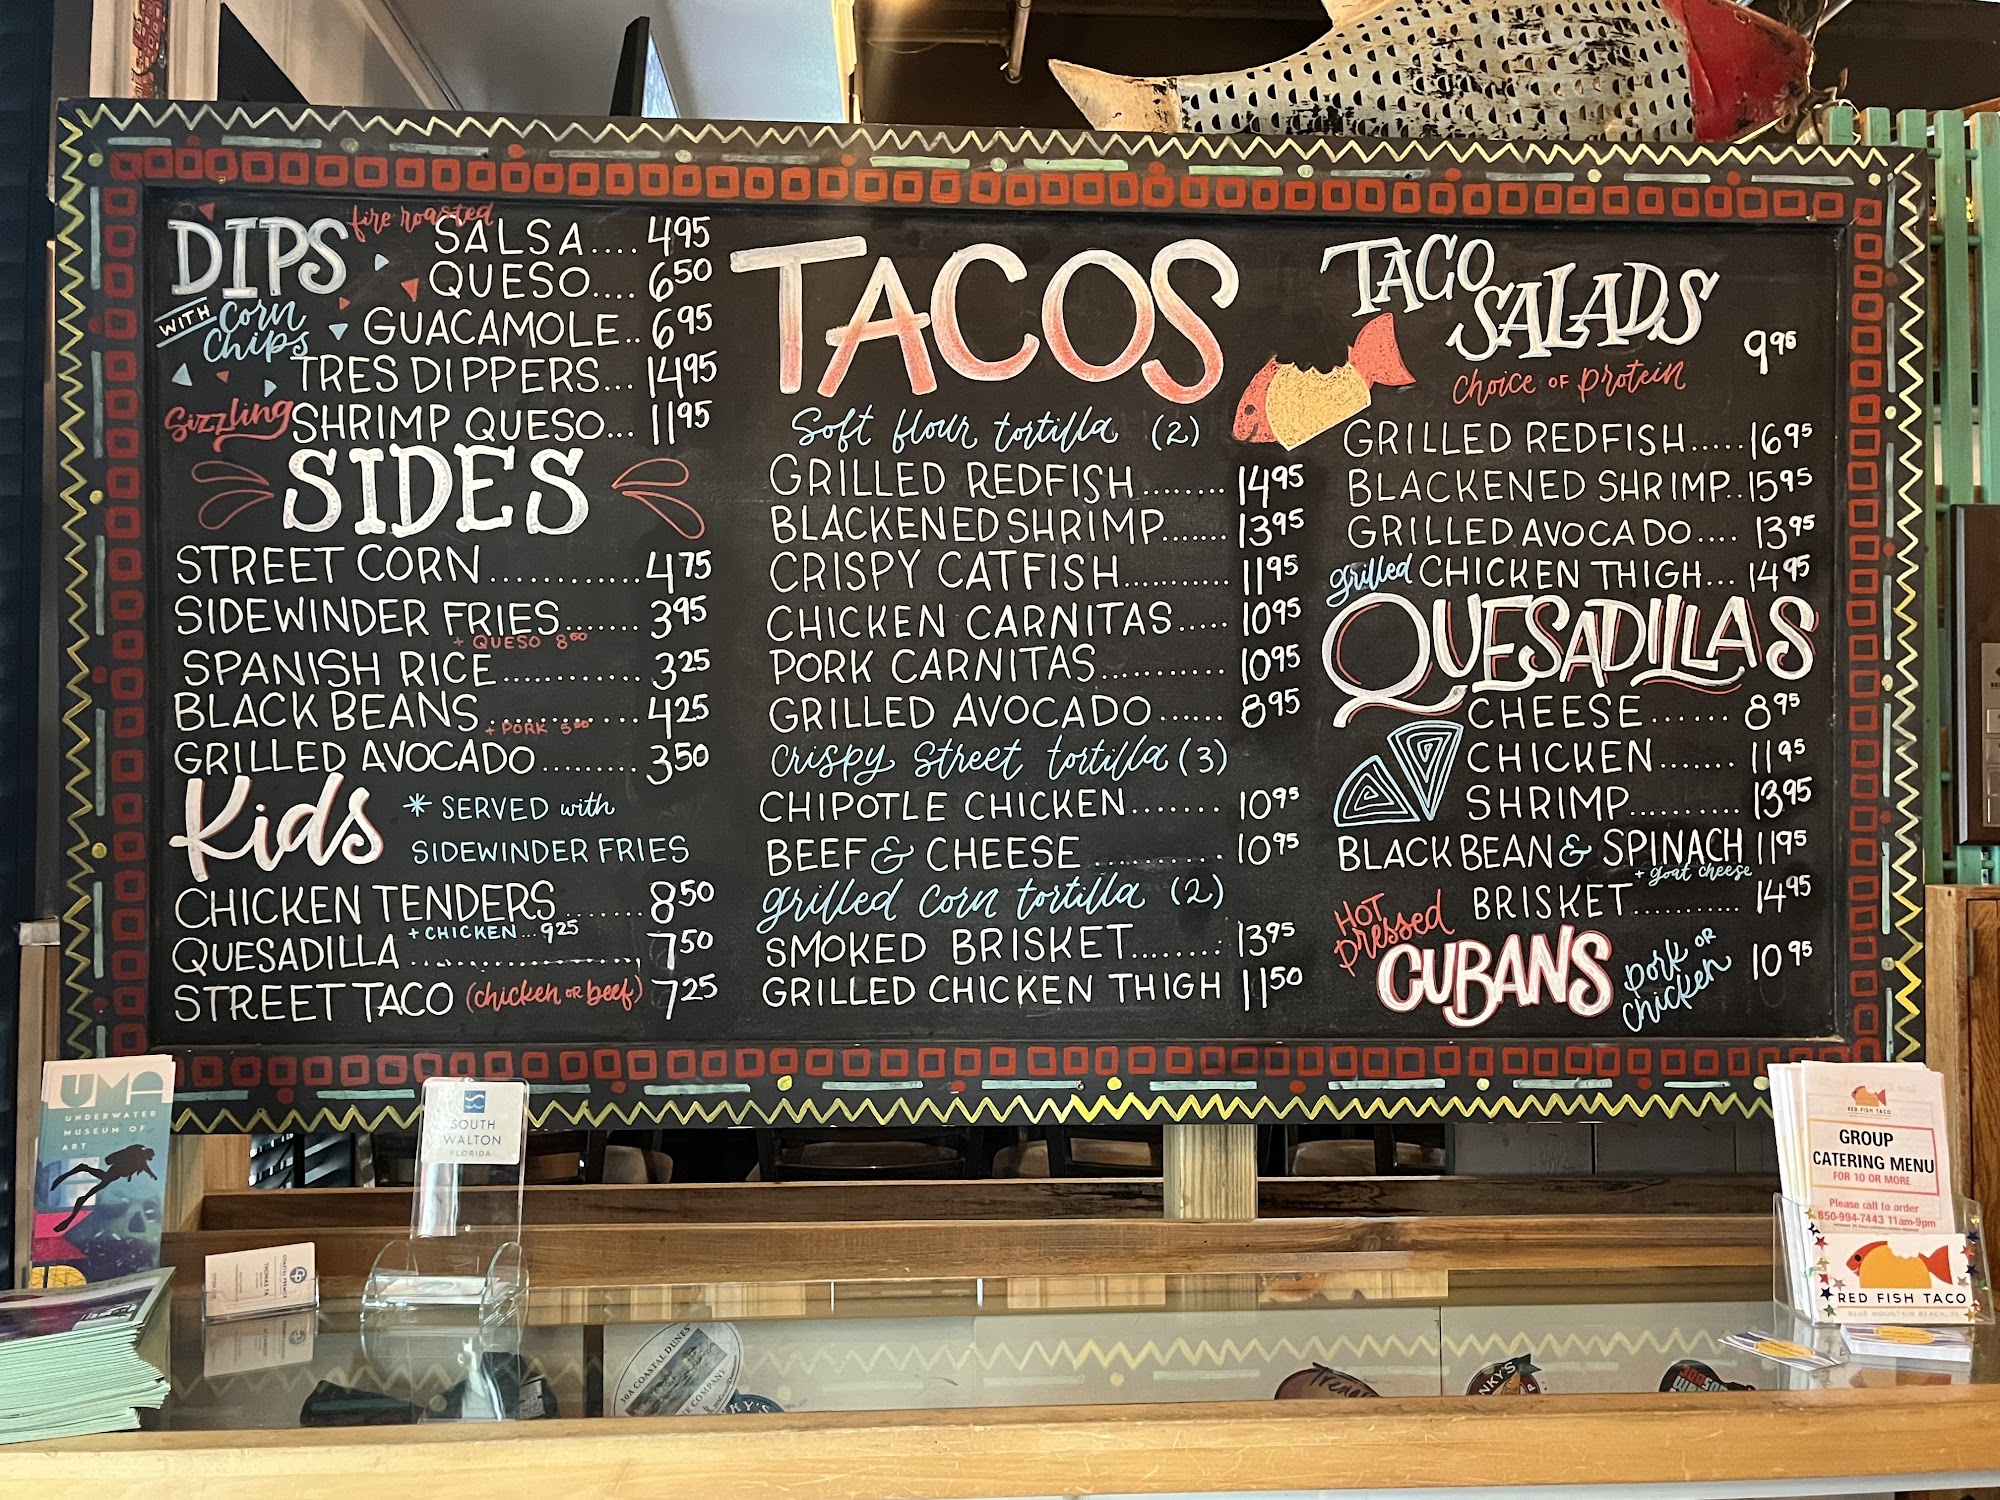 DIPS
with corn
chips
fire roasted
SALSA.... 4.95
QUESO.... 6.50
GUACAMOLE.. 6.95
TRES DIPPERS... 14.95
Sizzling SHRIMP QUESO... 11.95
SIDES
STREET CORN............ 4.75
SIDEWINDER FRIES....... 3.95
+ QUESO 8.50
SPANISH RICE............ 3.25
BLACK BEANS............ 4.25
+ PORK 5.50
GRILLED AVOCADO......... 3.50
Kids
* SERVED with
SIDEWINDER FRIES
CHICKEN TENDERS....... 8.50
+ CHICKEN... 9.25
QUESADILLA.................... 7.50
STREET TACO (chicken or beef) 7.25
TACOS
Soft flour tortilla (2)
GRILLED REDFISH........ 14.95
BLACKENED SHRIMP....... 13.95
CRISPY CATFISH........... 11.95
CHICKEN CARNITAS..... 10.95
PORK CARNITAS.......... 10.95
GRILLED AVOCADO...... 8.95
Crispy Street tortilla (3)
CHIPOTLE CHICKEN....... 10.95
BEEF & CHEESE.......... 10.95
grilled corn tortilla (2)
SMOKED BRISKET........ 13.95
GRILLED CHICKEN THIGH 11.50
TACO
SALADS
9.95
choice of protein
GRILLED REDFISH..... 16.95
BLACKENED SHRIMP.. 15.95
GRILLED AVOCADO.... 13.95
grilled CHICKEN THIGH... 14.95
QUESADILLAS
CHEESE...... 8.95
CHICKEN....... 11.95
SHRIMP.......... 13.95
BLACK BEAN & SPINACH 11.95
+ goat cheese
BRISKET........... 14.95
HOT
pressed
CUBANS
pork or
chicken
10.95
UMA
UNDERWATER
MUSEUM OF
ART
SOUTH
WALTON
FLORIDA
RED FISH TACO
GROUP
CATERING MENU
FOR 10 OR MORE
Please call to order
850-994-7443 11am-9pm
RED FISH TACO
BLUE MOUNTAIN BEACH, FL
30A COASTAL DUNES